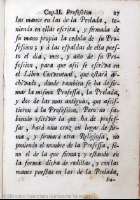 Cap. II. Profession 27
las manos en las de la Prelada, te-
niendo en ellas escrita, y firmada de
su mano propia la cedula de su Pro-
fession; y à las espaldas de ella pues-
to el dia, mes, y año de su Pro-
fession, para que assi se escriva en
el Libro Conventual, que estarà di-
chado, donde tambien se ha de
mar la misma Profession, la Prelada,
y dos de las mas antiguas, que assis-
tieren à la Profession. Pero no sa-
biendo escrivir la que ha de profes-
sar, harà una cruz en lugar de fir-
ma, y firmarà otra Religiosa, no
poniendo el nombre de la Profession, si-
no el de la que firma; y estando en
la forma dicha de rodillas, y con las
manos puestas en las de la Prelada,